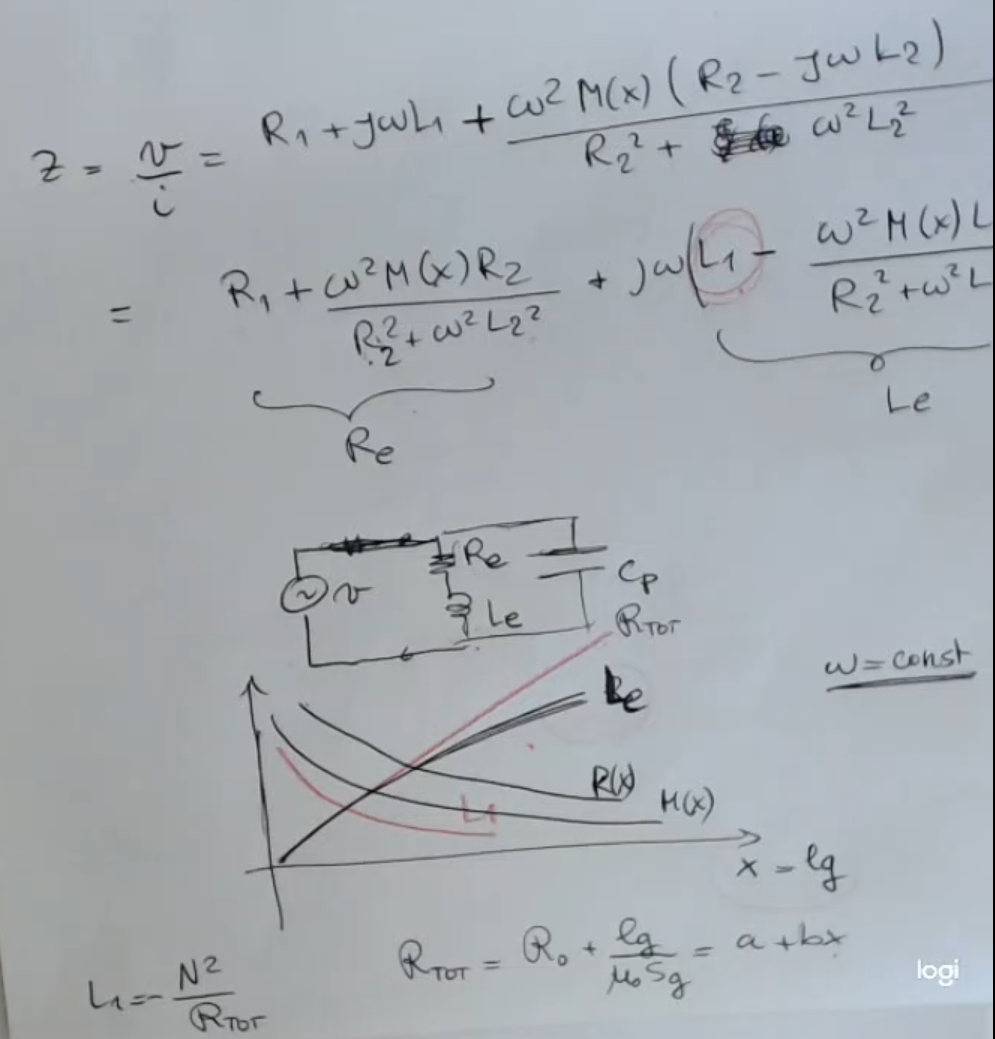 Z = v/i = R₁ + jωL₁ + ω² M(x) (R₂ - jωL₂) / R₂² + ω²L₂²
= R₁ + ω²M(x)R₂ / R₂² + ω²L₂² + jω(L₁ - ω²M(x)L / R₂² + ω²L
Re
Le
v
Re
Le
Cp
R_TOT
ω = const
Le
R(x)
M(x)
L₁
x = lg
R_TOT = R₀ + lg / μ₀Sg = a + bx
L₁ = N² / R_TOT
logi